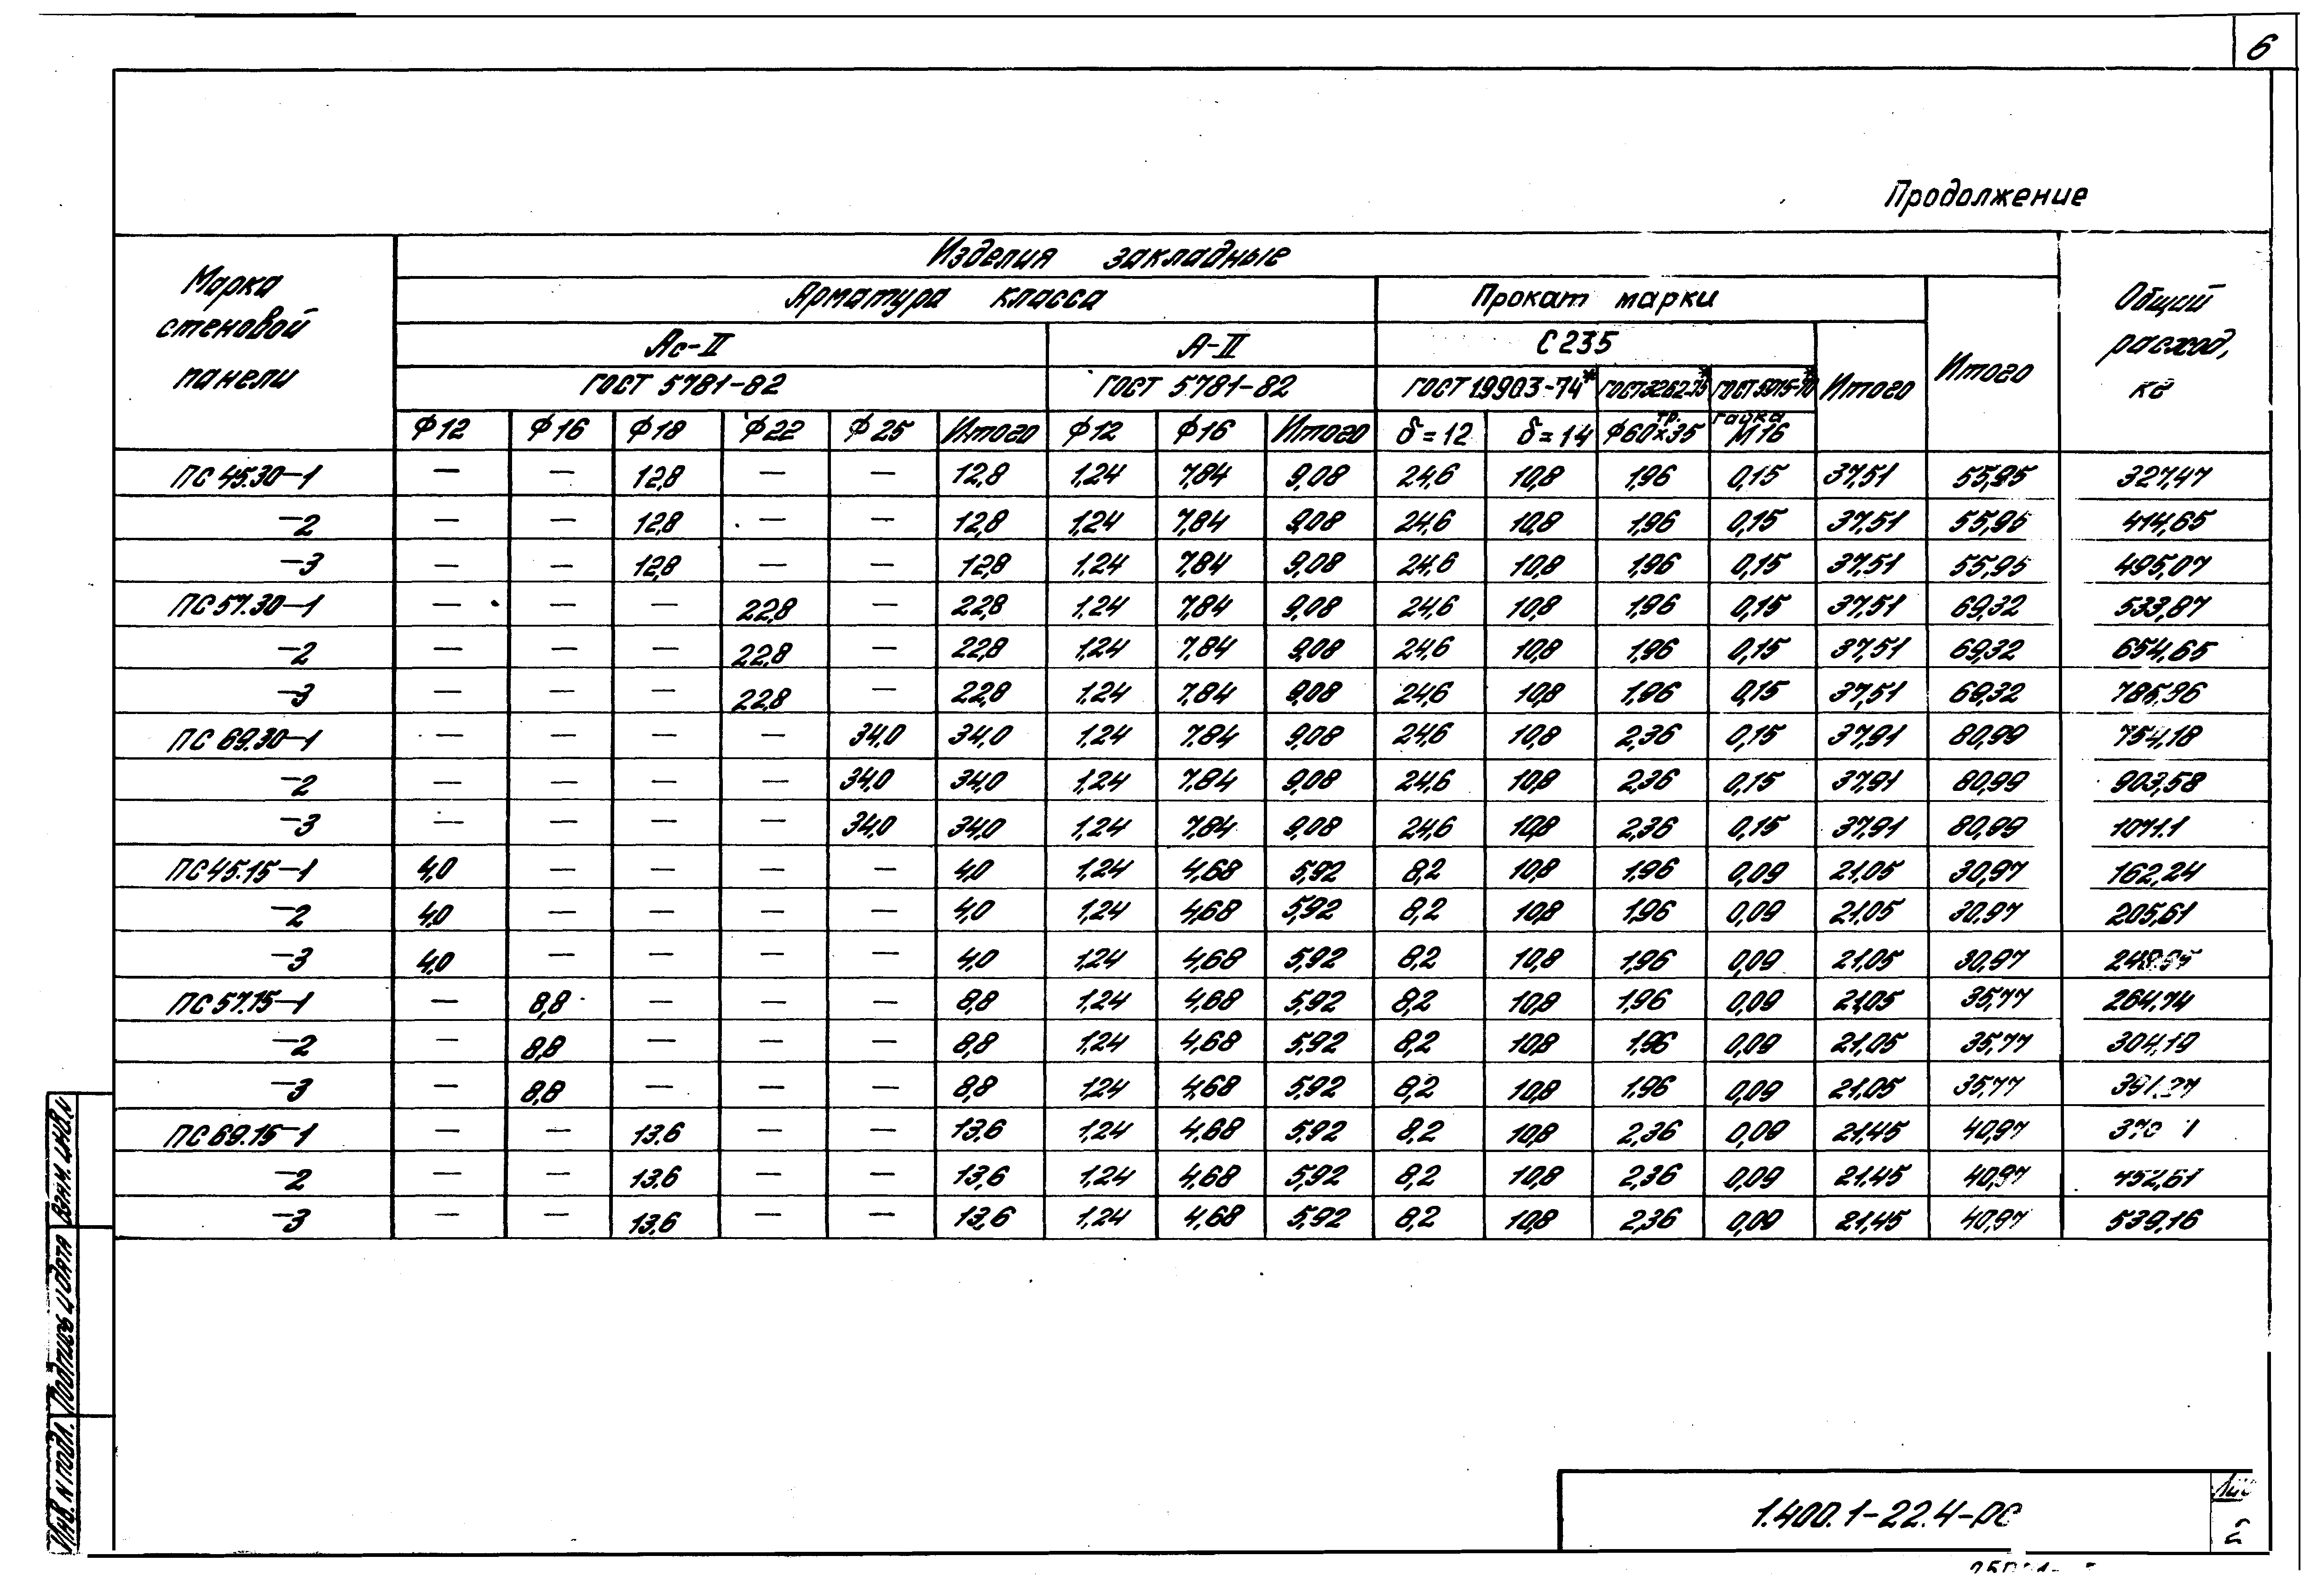 6
Продолжение
Марка стеновой панели | Изделия закладные | Общий расход, кг
Арматура класса | Прокат марки | Итого
Ас-II | А-II | С235 | Итого
ГОСТ 5781-82 | ГОСТ 5781-82 | ГОСТ 19903-74* | ГОСТ 3262-75* | ГОСТ 5915-70*
ϕ12 | ϕ16 | ϕ18 | ϕ22 | ϕ25 | Итого | ϕ12 | ϕ16 | Итого | δ=12 | δ=14 | тр. ϕ60×3,5 | гайка М16
ПС 45.30-1 | — | — | 12,8 | — | — | 12,8 | 1,24 | 7,84 | 9,08 | 24,6 | 10,8 | 1,96 | 0,15 | 37,51 | 55,95 | 327,47
-2 | — | — | 12,8 | — | — | 12,8 | 1,24 | 7,84 | 9,08 | 24,6 | 10,8 | 1,96 | 0,15 | 37,51 | 55,95 | 414,65
-3 | — | — | 12,8 | — | — | 12,8 | 1,24 | 7,84 | 9,08 | 24,6 | 10,8 | 1,96 | 0,15 | 37,51 | 55,95 | 495,07
ПС 57.30-1 | — | — | — | 22,8 | — | 22,8 | 1,24 | 7,84 | 9,08 | 24,6 | 10,8 | 1,96 | 0,15 | 37,51 | 69,32 | 533,87
-2 | — | — | — | 22,8 | — | 22,8 | 1,24 | 7,84 | 9,08 | 24,6 | 10,8 | 1,96 | 0,15 | 37,51 | 69,32 | 654,65
-3 | — | — | — | 22,8 | — | 22,8 | 1,24 | 7,84 | 9,08 | 24,6 | 10,8 | 1,96 | 0,15 | 37,51 | 69,32
ПС 69.30-1 | — | — | — | — | 34,0 | 34,0 | 1,24 | 7,84 | 9,08 | 24,6 | 10,8 | 2,36 | 0,15 | 37,91 | 80,99 | 754,18
-2 | — | — | — | — | 34,0 | 34,0 | 1,24 | 7,84 | 9,08 | 24,6 | 10,8 | 2,36 | 0,15 | 37,91 | 80,99 | 903,58
-3 | — | — | — | — | 34,0 | 34,0 | 1,24 | 7,84 | 9,08 | 24,6 | 10,8 | 2,36 | 0,15 | 37,91 | 80,99 | 1071.1
ПС 45.15-1 | 4,0 | — | — | — | — | 4,0 | 1,24 | 4,68 | 5,92 | 8,2 | 10,8 | 1,96 | 0,09 | 21,05 | 30,97 | 162,24
-2 | 4,0 | — | — | — | — | 4,0 | 1,24 | 4,68 | 5,92 | 8,2 | 10,8 | 1,96 | 0,09 | 21,05 | 30,97 | 205,61
-3 | 4,0 | — | — | — | — | 4,0 | 1,24 | 4,68 | 5,92 | 8,2 | 10,8 | 1,96 | 0,09 | 21,05 | 30,97
ПС 57.15-1 | — | 8,8 | — | — | — | 8,8 | 1,24 | 4,68 | 5,92 | 8,2 | 10,8 | 1,96 | 0,09 | 21,05 | 35,77 | 264,74
-2 | — | 8,8 | — | — | — | 8,8 | 1,24 | 4,68 | 5,92 | 8,2 | 10,8 | 1,96 | 0,09 | 21,05 | 35,77 | 304,19
-3 | — | 8,8 | — | — | — | 8,8 | 1,24 | 4,68 | 5,92 | 8,2 | 10,8 | 1,96 | 0,09 | 21,05 | 35,77
ПС 69.15-1 | — | — | 13,6 | — | — | 13,6 | 1,24 | 4,68 | 5,92 | 8,2 | 10,8 | 2,36 | 0,09 | 21,45 | 40,97
-2 | — | — | 13,6 | — | — | 13,6 | 1,24 | 4,68 | 5,92 | 8,2 | 10,8 | 2,36 | 0,09 | 21,45 | 40,97 | 452,61
-3 | — | — | 13,6 | — | — | 13,6 | 1,24 | 4,68 | 5,92 | 8,2 | 10,8 | 2,36 | 0,09 | 21,45 | 40,97 | 539,16
Взам. инв. №
Подпись и дата
Инв. № подл.
1.400.1-22.4-РС
2